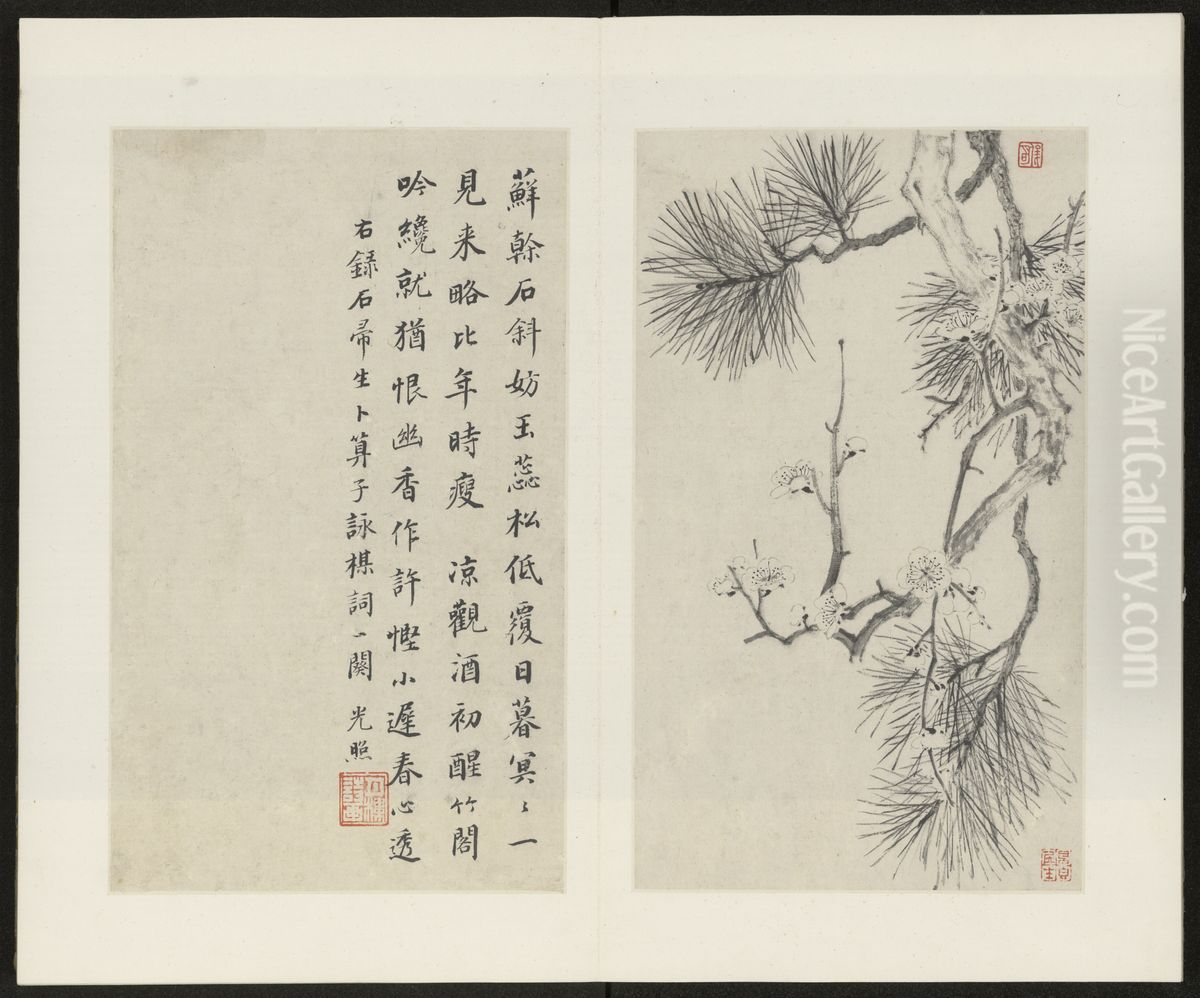 蘚榦石斜妨玉蕊松低覆日暮冥〻一
見来略比年時瘦 凉觀酒初醒竹閣
吟纔就猶恨幽香作許慳小遲春心透
右録石帚生卜算子詠楳詞一闋 光照
NiceArtGallery.com